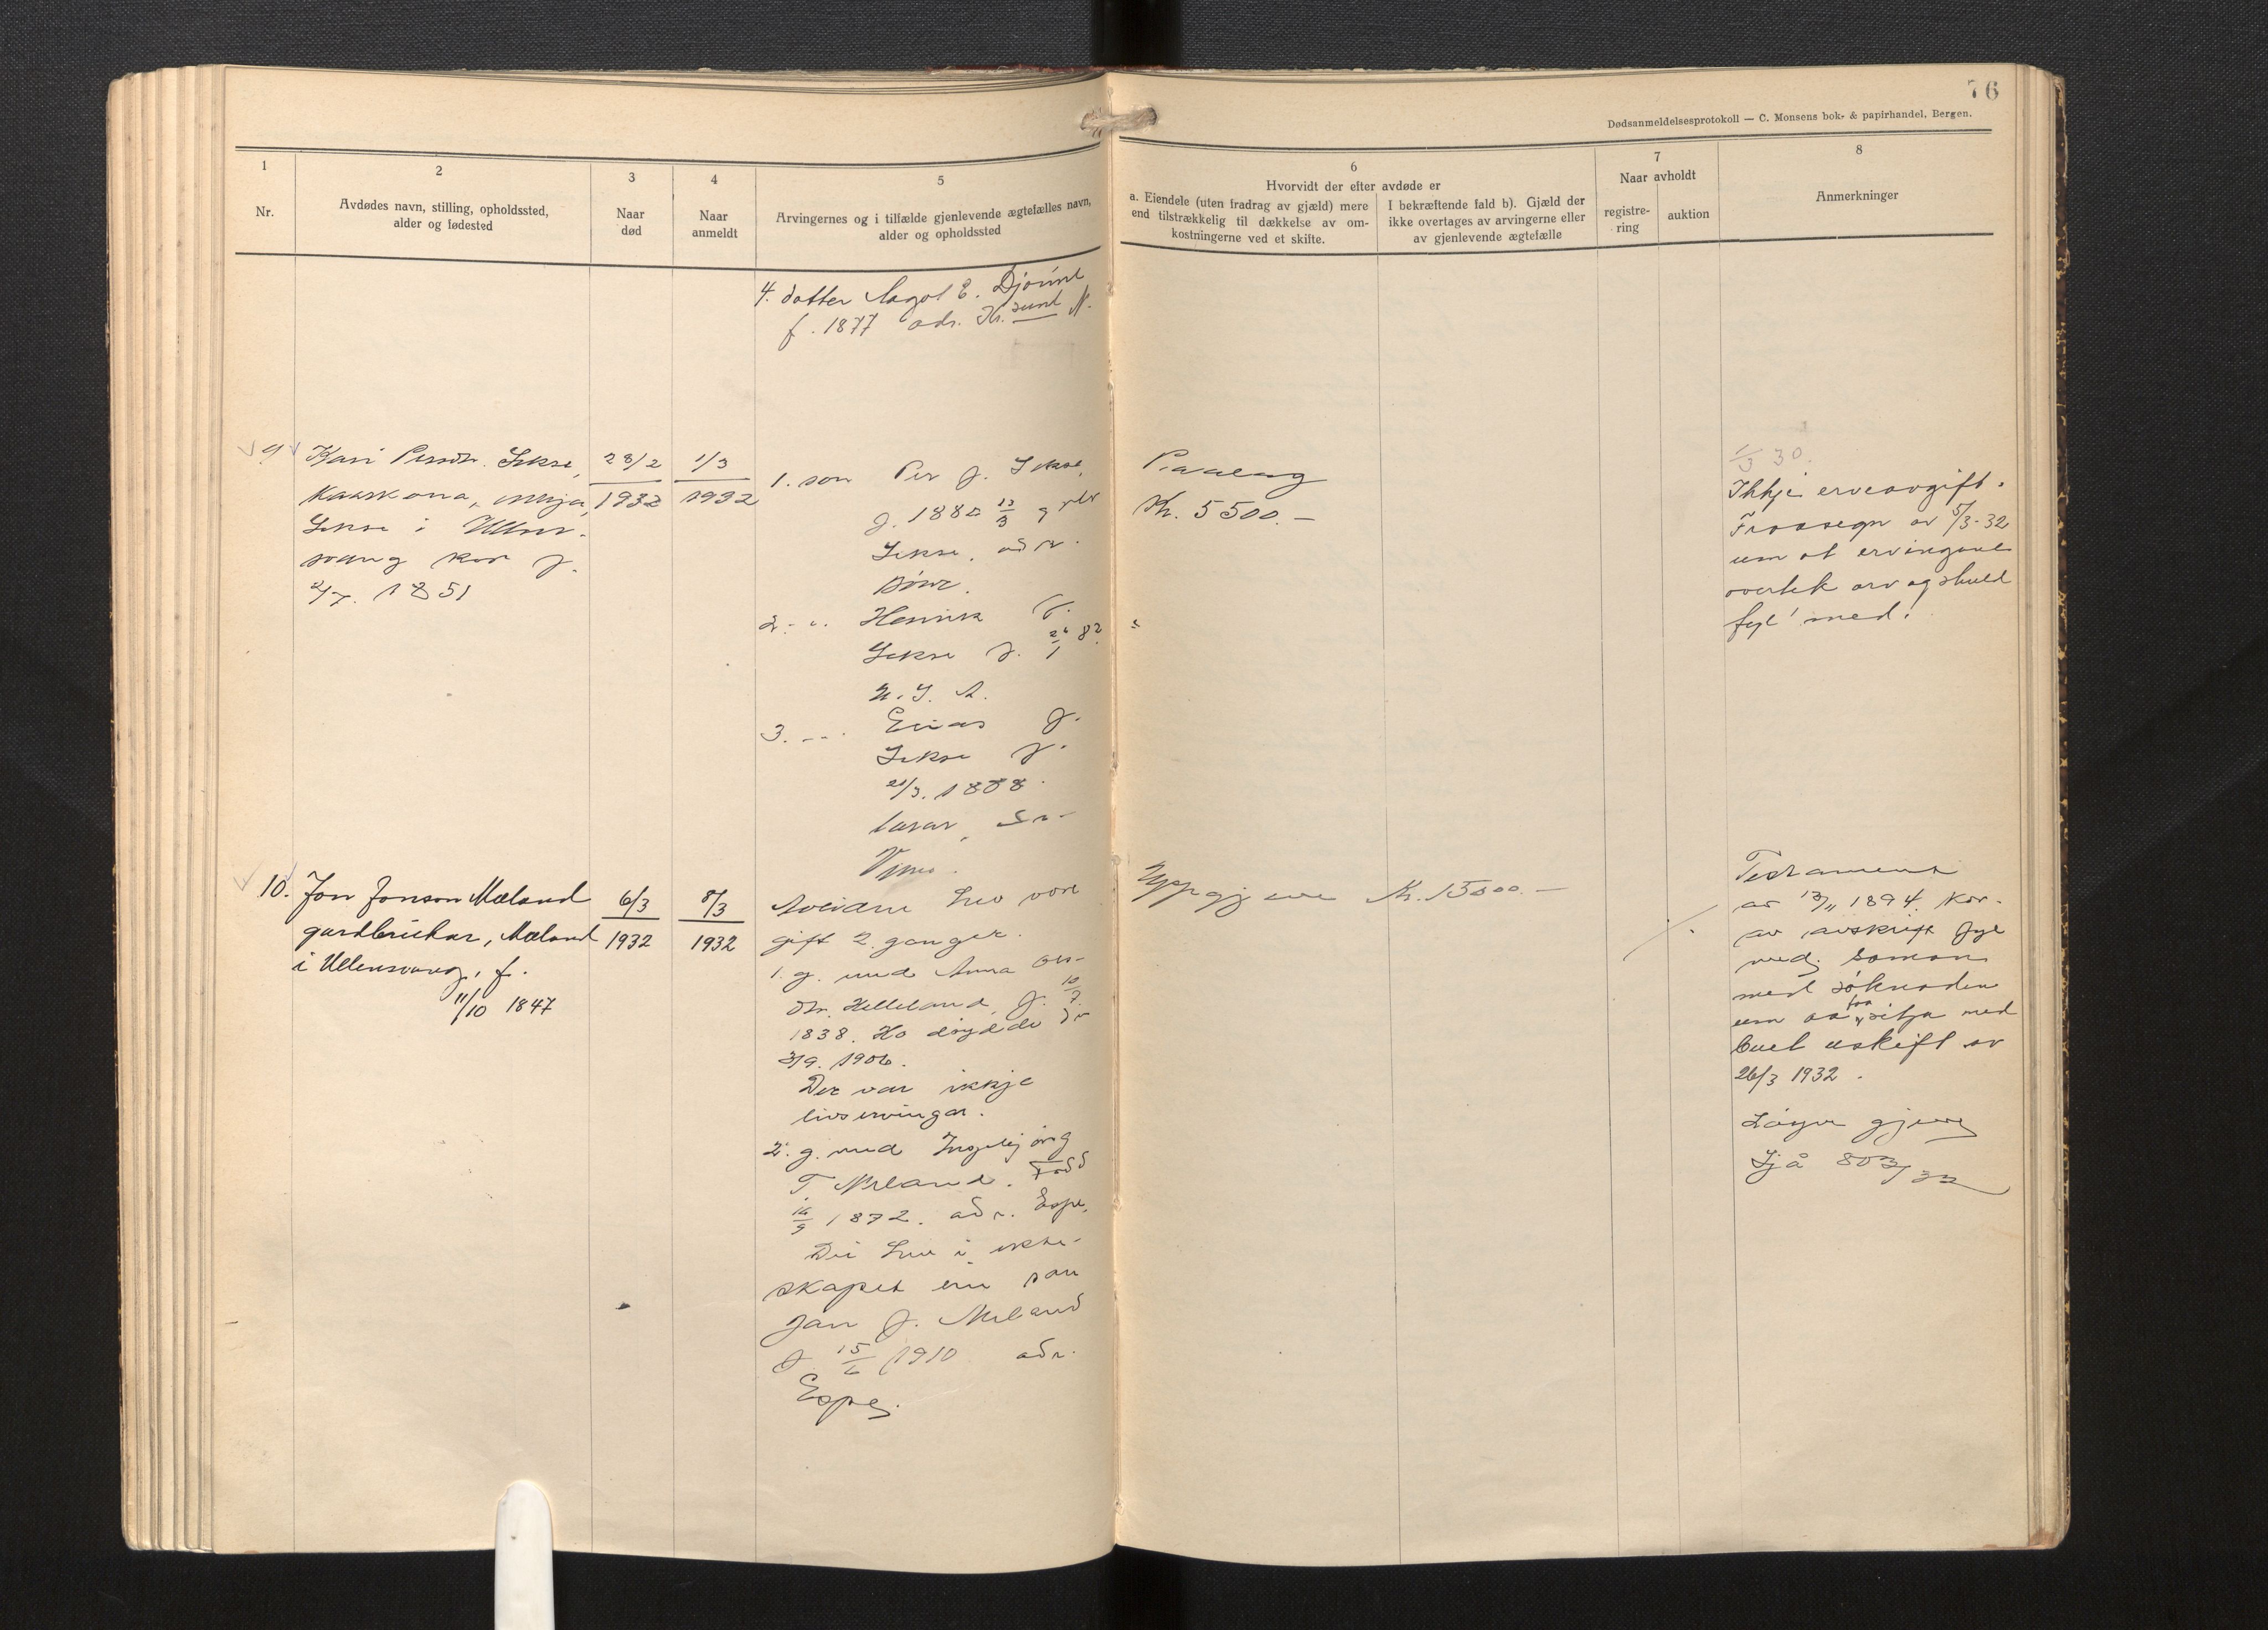 76
Dødsanmeldelsesprotokoll — C. Monsens bok- & papirhandel, Bergen.
1
Nr.
2
Avdødes navn, stilling, opholdssted,
alder og fødested
3
Naar
død
4
Naar
anmeldt
5
Arvingernes og i tilfælde gjenlevende ægtefælles navn,
alder og opholdssted
6
Hvorvidt der efter avdøde er
a. Eiendele (uten fradrag av gjæld) mere
end tilstrækkelig til dækkelse av om-
kostningerne ved et skifte.
I bekræftende fald b). Gjæld der
ikke overtages av arvingerne eller
av gjenlevende ægtefælle
7
Naar avholdt
registre-
ring
auktion
8
Anmerkninger
4. dotter E. Djönne
f. 1877 adr. Kr.sund N.
9
Kari Persdtr. Sekse,
Kaarkona, enkja,
Sekse i Ullens-
vang kor f.
2/7. 1851
28/2
1932
1/3
1932
1. son Per J. Sekse,
f. 1880 13/3
Sekse. adr.
Børve.
2. " Henrik J.
Sekse f. 26/1 82
U. S. A.
3. " J.
Sekse f.
21/3. 1888.
lærar,
Paalag
Kr. 5500.-
1/3 30.
Ikkje erveavgift.
Fraasegn av 5/3-32
um at ervingane
overtek arv og skuld
fyl' med.
10.
Jon Jonson Mæland
gardbrukar, Mæland
i Ullensvang, f.
11/10 1847
6/3
1932
8/3
1932
Avlidne hev vore
gift 2. gonger.
1. g. med Anna
dtr. Helleland, f. 10/7.
1838. Ho døydde
3/9. 1906.
Der var ikkje
livservingar.
2. g. med Ingebjørg
T. Mæland. Fødd
16/9 1872. adr. Espe,
Dei hev i ekte-
skapet ein son
Jon J. Mæland
f. 15/6 1910 adr.
Espe.
Uppgjeve Kr. 15000.-
Testament
av 13/11 1894. Kor-
av avskrift fyl
med. Soman
med søknaden
um aa faa sitja med
buet uskift av
26/3 1932.
Løyve gjeve
Sjå 803/32